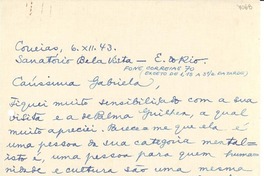 Correias, 6.XII.43.
Sanatório Bela Vista — E. do Rio.
FONE CORREIAS 70
Caríssima Gabriela,
Fiquei muito sensibilizado com a sua
visita e a de Palma Guillén, a qual
muito apreciei. Parece-me que ela é
uma pessoa de sua categoria mental—
isto é, uma pessoa para quem huma-
nidade e cultura são uma mesma